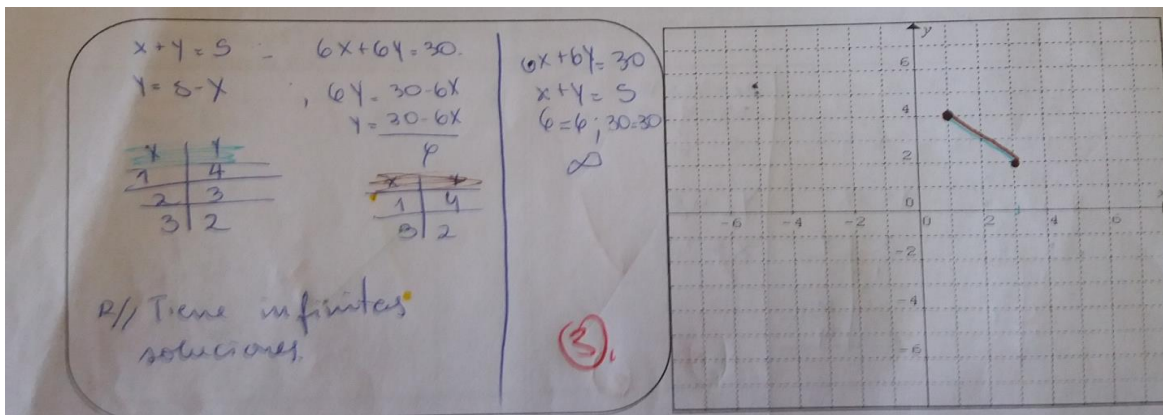 x+y=5
y=5-x
x y
1 4
2 3
3 2
6x+6y=30.
; 6y=30-6x
y=30-6x
x y
1 4
3 2
R// Tiene infinitas
soluciones.
6x+6y=30
x+y=5
6=6; 30=30
∞
3
y
6
4
2
0
-6 -4 -2 0 2 4 6
-2
-4
-6